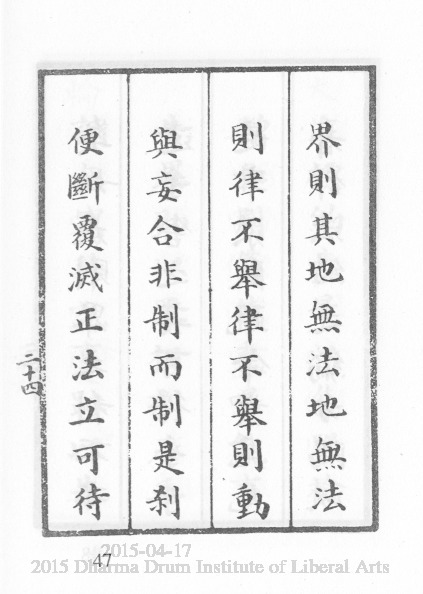 界則其地無法地無法
則律不舉律不舉則動
與妄合非制而制是刹
便斷覆滅正法立可待
二十四
47
2015-04-17
2015 Dharma Drum Institute of Liberal Arts